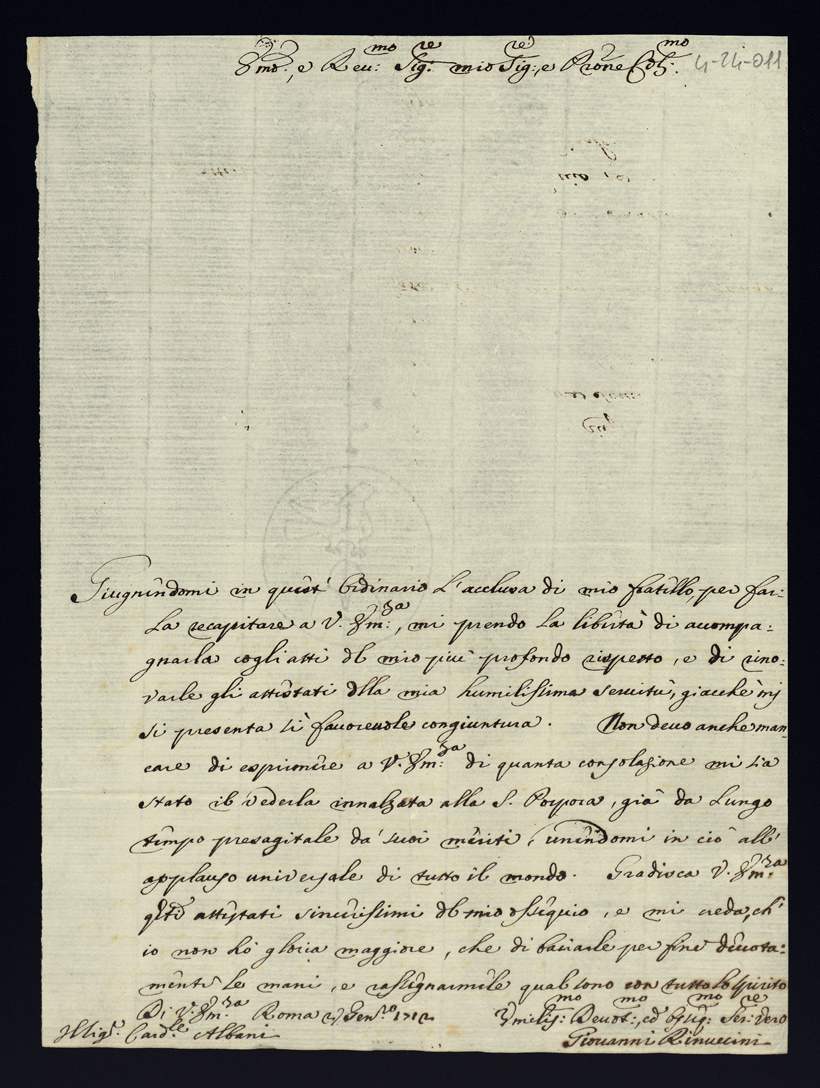 Emo:, e Reu:mo Sig:re mio Sig:re, e Prone Col:mo
4-24-011
Giugnendomi in quest' Ordinario l'acclusa di mio fratello, per far=
la recapitare a V. Em:za, mi prendo la libertà di accompa=
gnarla cogli atti del mio più profondo rispetto, e di rino=
varle gli attestati della mia humilissima seruitù, giacchè mi
si presenta sì fauoreuole congiuntura. Non deuo anche man
care di esprimere a V. Em:za di quanta consolazione mi sia
stato il vederla innalzata alla S. Porpora, già da lungo
tempo presagitale da' suoi meriti, unendomi in ciò all'
applauso uniuersale di tutto il mondo. Gradisca V. Em:za
questi attestati sincerissimi del mio ossequio, e mi creda, ch'
io non hò gloria maggiore, che di baciarle per fine deuota=
mente le mani, e rassegnarmele qual sono con tutto lo spirito
Di V. Em:za Roma Gen:ro 1712
Vmiliss:mo Deuot:mo, ed Osseq:mo Ser:re vero
Sig:r Card:le Albani
Giouanni Rinuccini